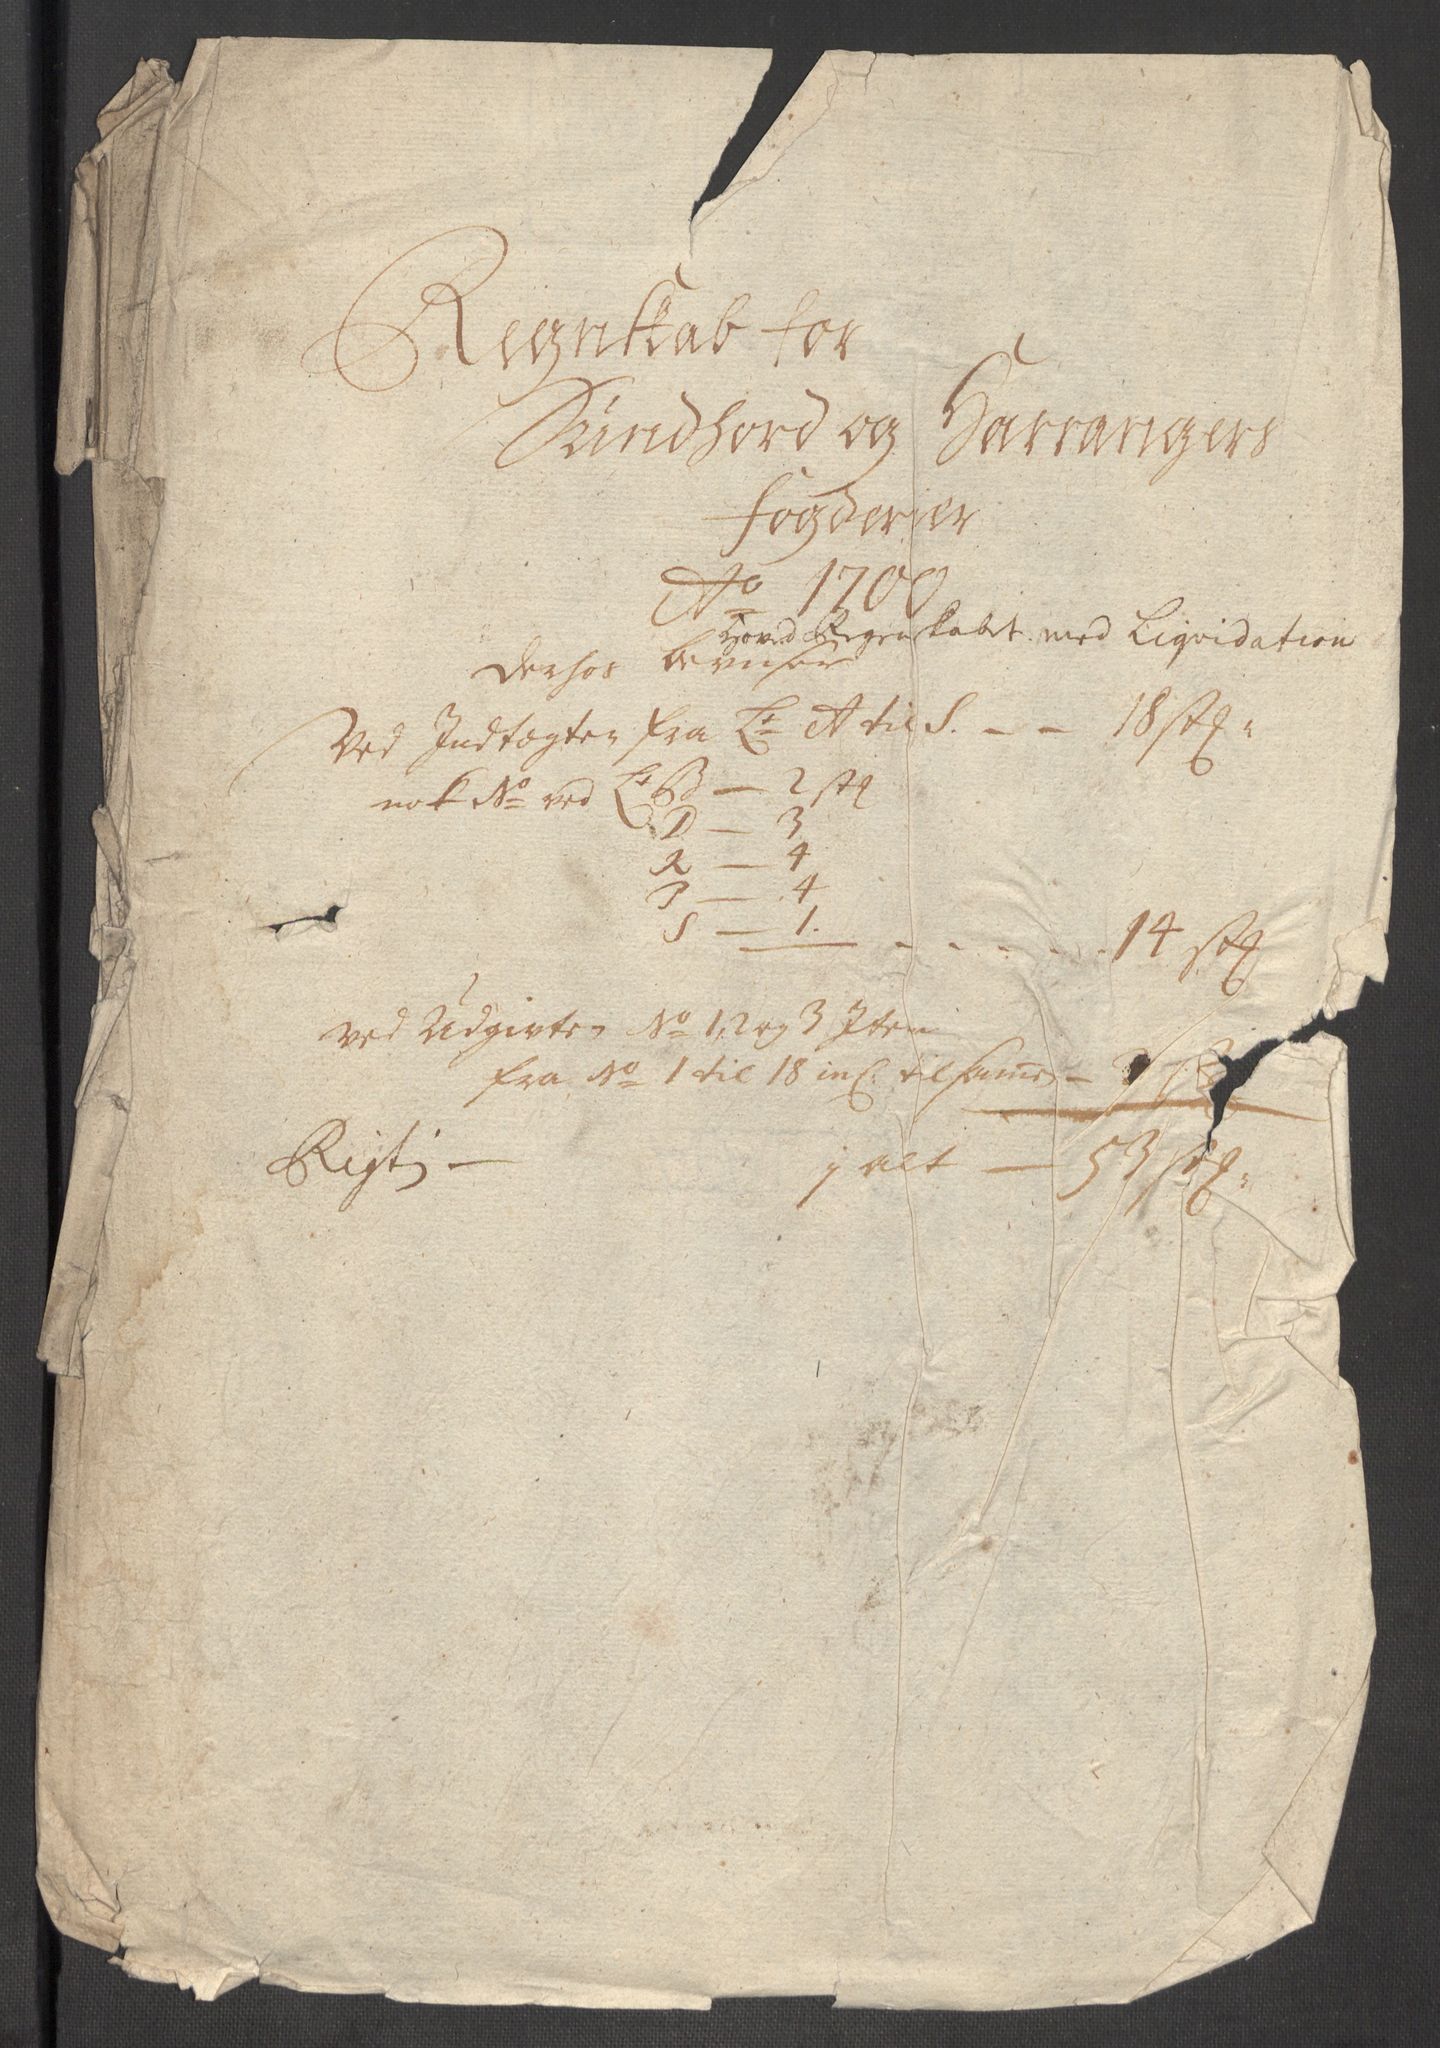 Regnskab for
Sundhord og Harranger
Fogderier
Ao 1700
Hoved Regenskabet med Liqvidation
derhos
Ved Indtægten fra Lr A til S. — — 18 stk
nok No ved Lr B — 2 stk
D — 3
R — 4
— 4
S — 1.
14 stk
ved Udgivten No 1, 2 og 3 Item
fra No 1 til 18 incl. tilsamen —
Rigti — j alt — 53 stk